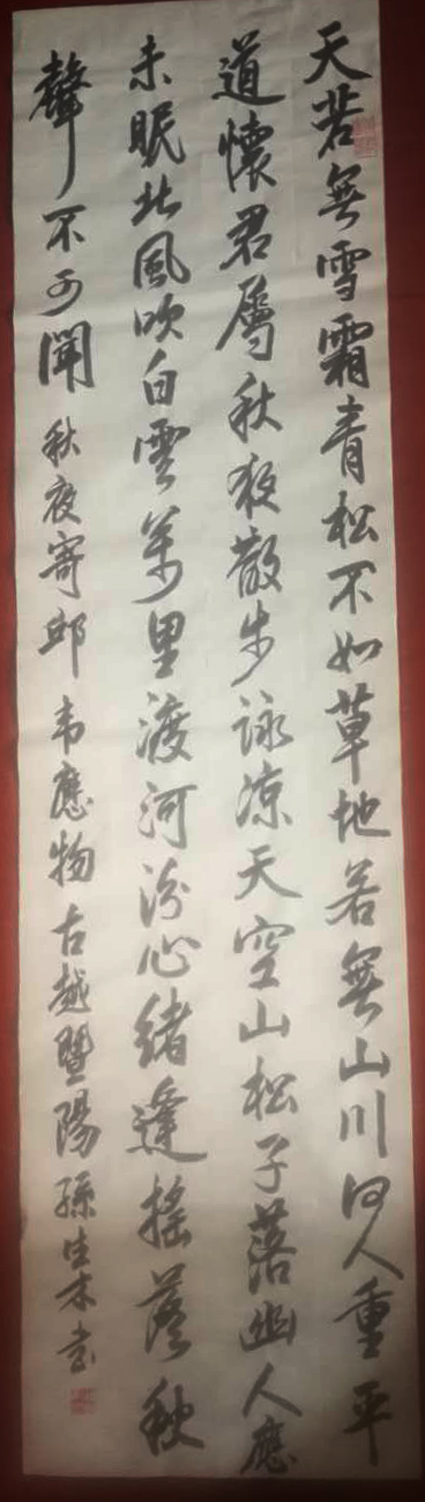 天若無雪霜青松不如草地若無山川何人重平
道懷君屬秋夜散步詠涼天空山松子落幽人應
未眠北風吹白雲萬里渡河汾心緒逢搖落秋
聲不可聞秋夜寄邱韋應物古越暨陽孫生木書